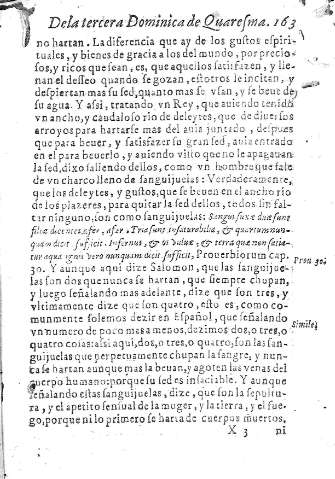 De la tercera Dominica de Quaresma. 163
no hartan. La diferencia que ay de los gustos espiri-
tuales, y bienes de gracia a los del mundo, por precio-
sos, y ricos que sean, es, que aquellos satisfazen, y lle-
nan el desseo quando se gozan, estotros le incitan, y
despiertan mas su sed, quanto mas se vsan, y se beue de
su agua. Y assi, tratando vn Rey, que auiendo tenido
vn ancho, y caudaloso rio de deleytes, que de diuersos
arroyos para hartarse mas del auia juntado, despues
que para beuer, y satisfazer su gran sed, auia entrado
en el para beuerlo, y auiendo visto que no le apagauan
la sed, dixo saliendo dellos, como vn hombre que sale
de vn charco lleno de sanguijuelas: Verdaderamente,
que los deleytes, y gustos, que se beuen en el ancho rio
de los plazeres, para quitar la sed dellos, todos sin fal-
tar ninguno, son como sanguijuelas: Sanguisugæ duæ sunt
filiæ dicentes, afer, afer. Tria sunt insaturabilia, & quartum nun-
quam dicit sufficit. Infernus, & os vuluæ, & terra quæ non satia-
tur aqua, ignis vero nunquam dicit sufficit, Prouerbiorum cap.
30. Y aunque aqui dize Salomon, que las sanguijue-
las son dos que nunca se hartan, que siempre chupan,
y luego señalando mas adelante, dize que son tres, y
vltimamente dize que son quatro, esto es, como co-
munmente solemos dezir en Español, que señalando
vn numero de poco mas a menos, dezimos dos, o tres, o
quatro cosas: assi aqui, dos, o tres, o quatro, son las san-
guijuelas que perpetuamente chupan la sangre, y nun-
ca se hartan aunque mas la beuan, y agoten las venas del
cuerpo humano: porque su sed es insaciable. Y aunque
señalando estas sanguijuelas, dize, que son la sepultu-
ra, y el apetito sensual de la muger, y la tierra, y el fue-
go, porque ni lo primero se harta de cuerpos muertos,
X 3 ni
Prou. 30.
Simile.